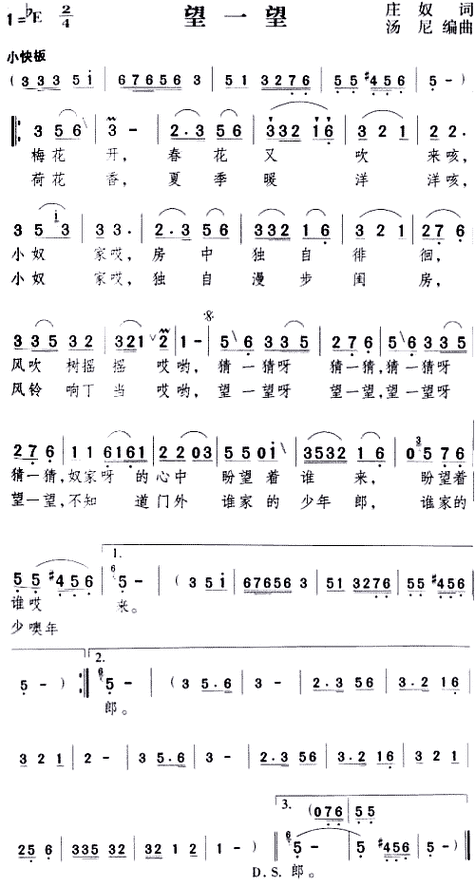 1=♭E 2/4 望一望 庄奴 词
汤尼 编曲
小快板
(3 3 3 5 i | 67656 3 | 51 3276 | 55 #456 | 5 -)
3 56 | 3 - | 2·3 56 | 332 16 | 3 21 | 22·
梅花 开, 春花 又 吹 来咳,
荷花 香, 夏季 暖 洋 洋咳,
3 5 i 3 | 33· | 2·3 56 | 332 16 | 3 21 | 276
小奴 家哎, 房中 独自 徘 徊,
小奴 家哎, 独自 漫步 闺 房,
335 32 | 321 2 | 1 - | 5 6 335 | 276 | 5 6 335
风吹 树摇 摇 哎哟, 猜一猜呀 猜一猜,猜一猜呀
风铃 响丁 当 哎哟, 望一望呀 望一望,望一望呀
276 | 11 6161 | 2 2203 | 550i | 3532 16 | 0 3 576
猜一猜,奴家呀 的心中 盼望着 谁 来, 盼望着
望一望,不知 道门外 谁家的 少年 郎, 谁家的
5 5 #456 | 1. 6 5 - | (3 5 i | 67656 3 | 51 3276 | 55 #456
谁哎 来。
少噢年
5 -) :‖ 2. 6 5 - | (3 5·6 | 3 - | 2·3 56 | 3·2 16
郎。
3 21 | 2 - | 3 5·6 | 3 - | 2·3 56 | 3·2 16 | 3 21
3. (076 | 55
25 6 | 335 32 | 32 12 | 1 -) | 6 5 - | 5 #456 | 5 -)
D.S. 郎。